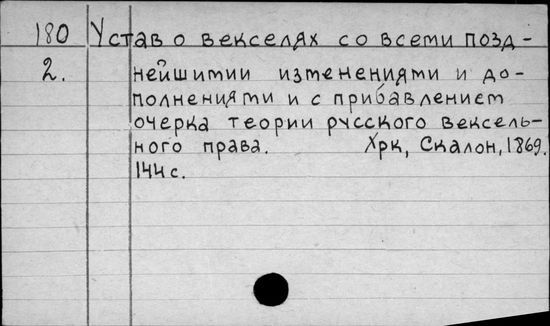 180 Устав о векселях со всеми позд-
2. нейшими изменениями и до-
полнениями и с прибавлением
очерка теории русского вексель-
ного права. Хрк, Скалон, 1869.
144 с.